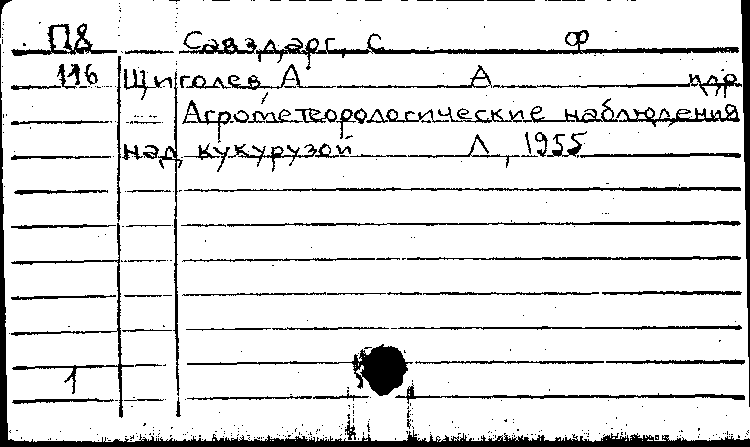 П8 Савздарг, С Ф
116 Щиголев, А А и др
Агрометеорологические наблюдения
над кукурузой Л, 1955
1